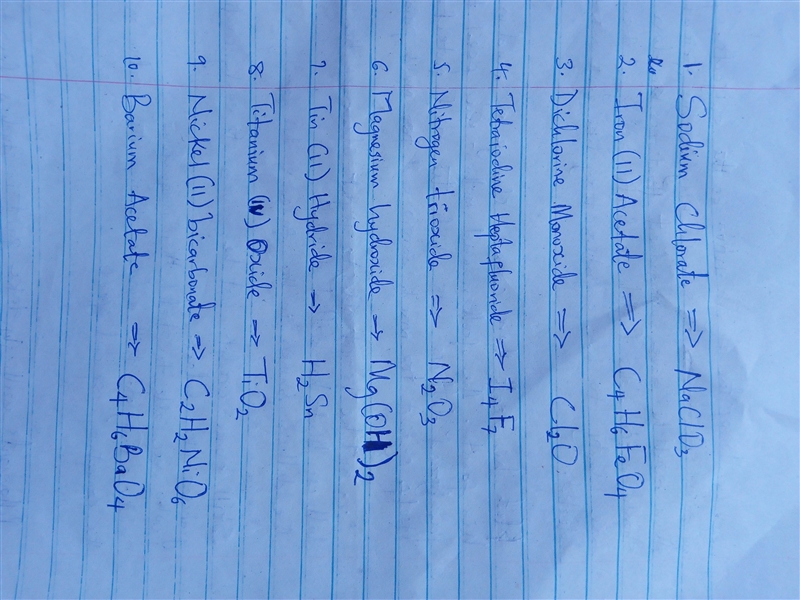 1. Sodium Chlorate => NaClO3
2. Iron (11) Acetate => C4H6FeO4
3. Dichlorine Monoxide => Cl2O
4. Tetraiodine Heptafluoride => I4F7
5. Nitrogen trioxide => N2O3
6. Magnesium hydroxide -> Mg(OH)2
7. Tin (11) Hydride -> H2Sn
8. Titanium (IV) Oxide -> TiO2
9. Nickel (11) bicarbonate -> C2H2NiO6
10. Barium Acetate -> C4H6BaO4